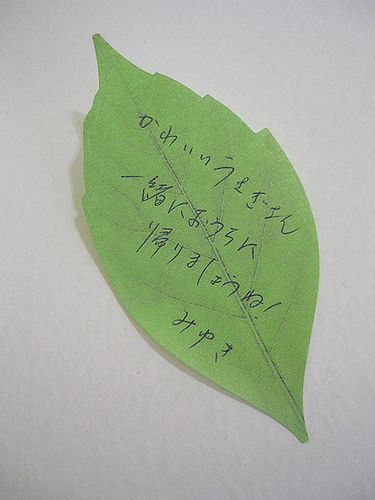 かわいいうさぎさん
一緒におうちに
帰りましょうね!
みゆき